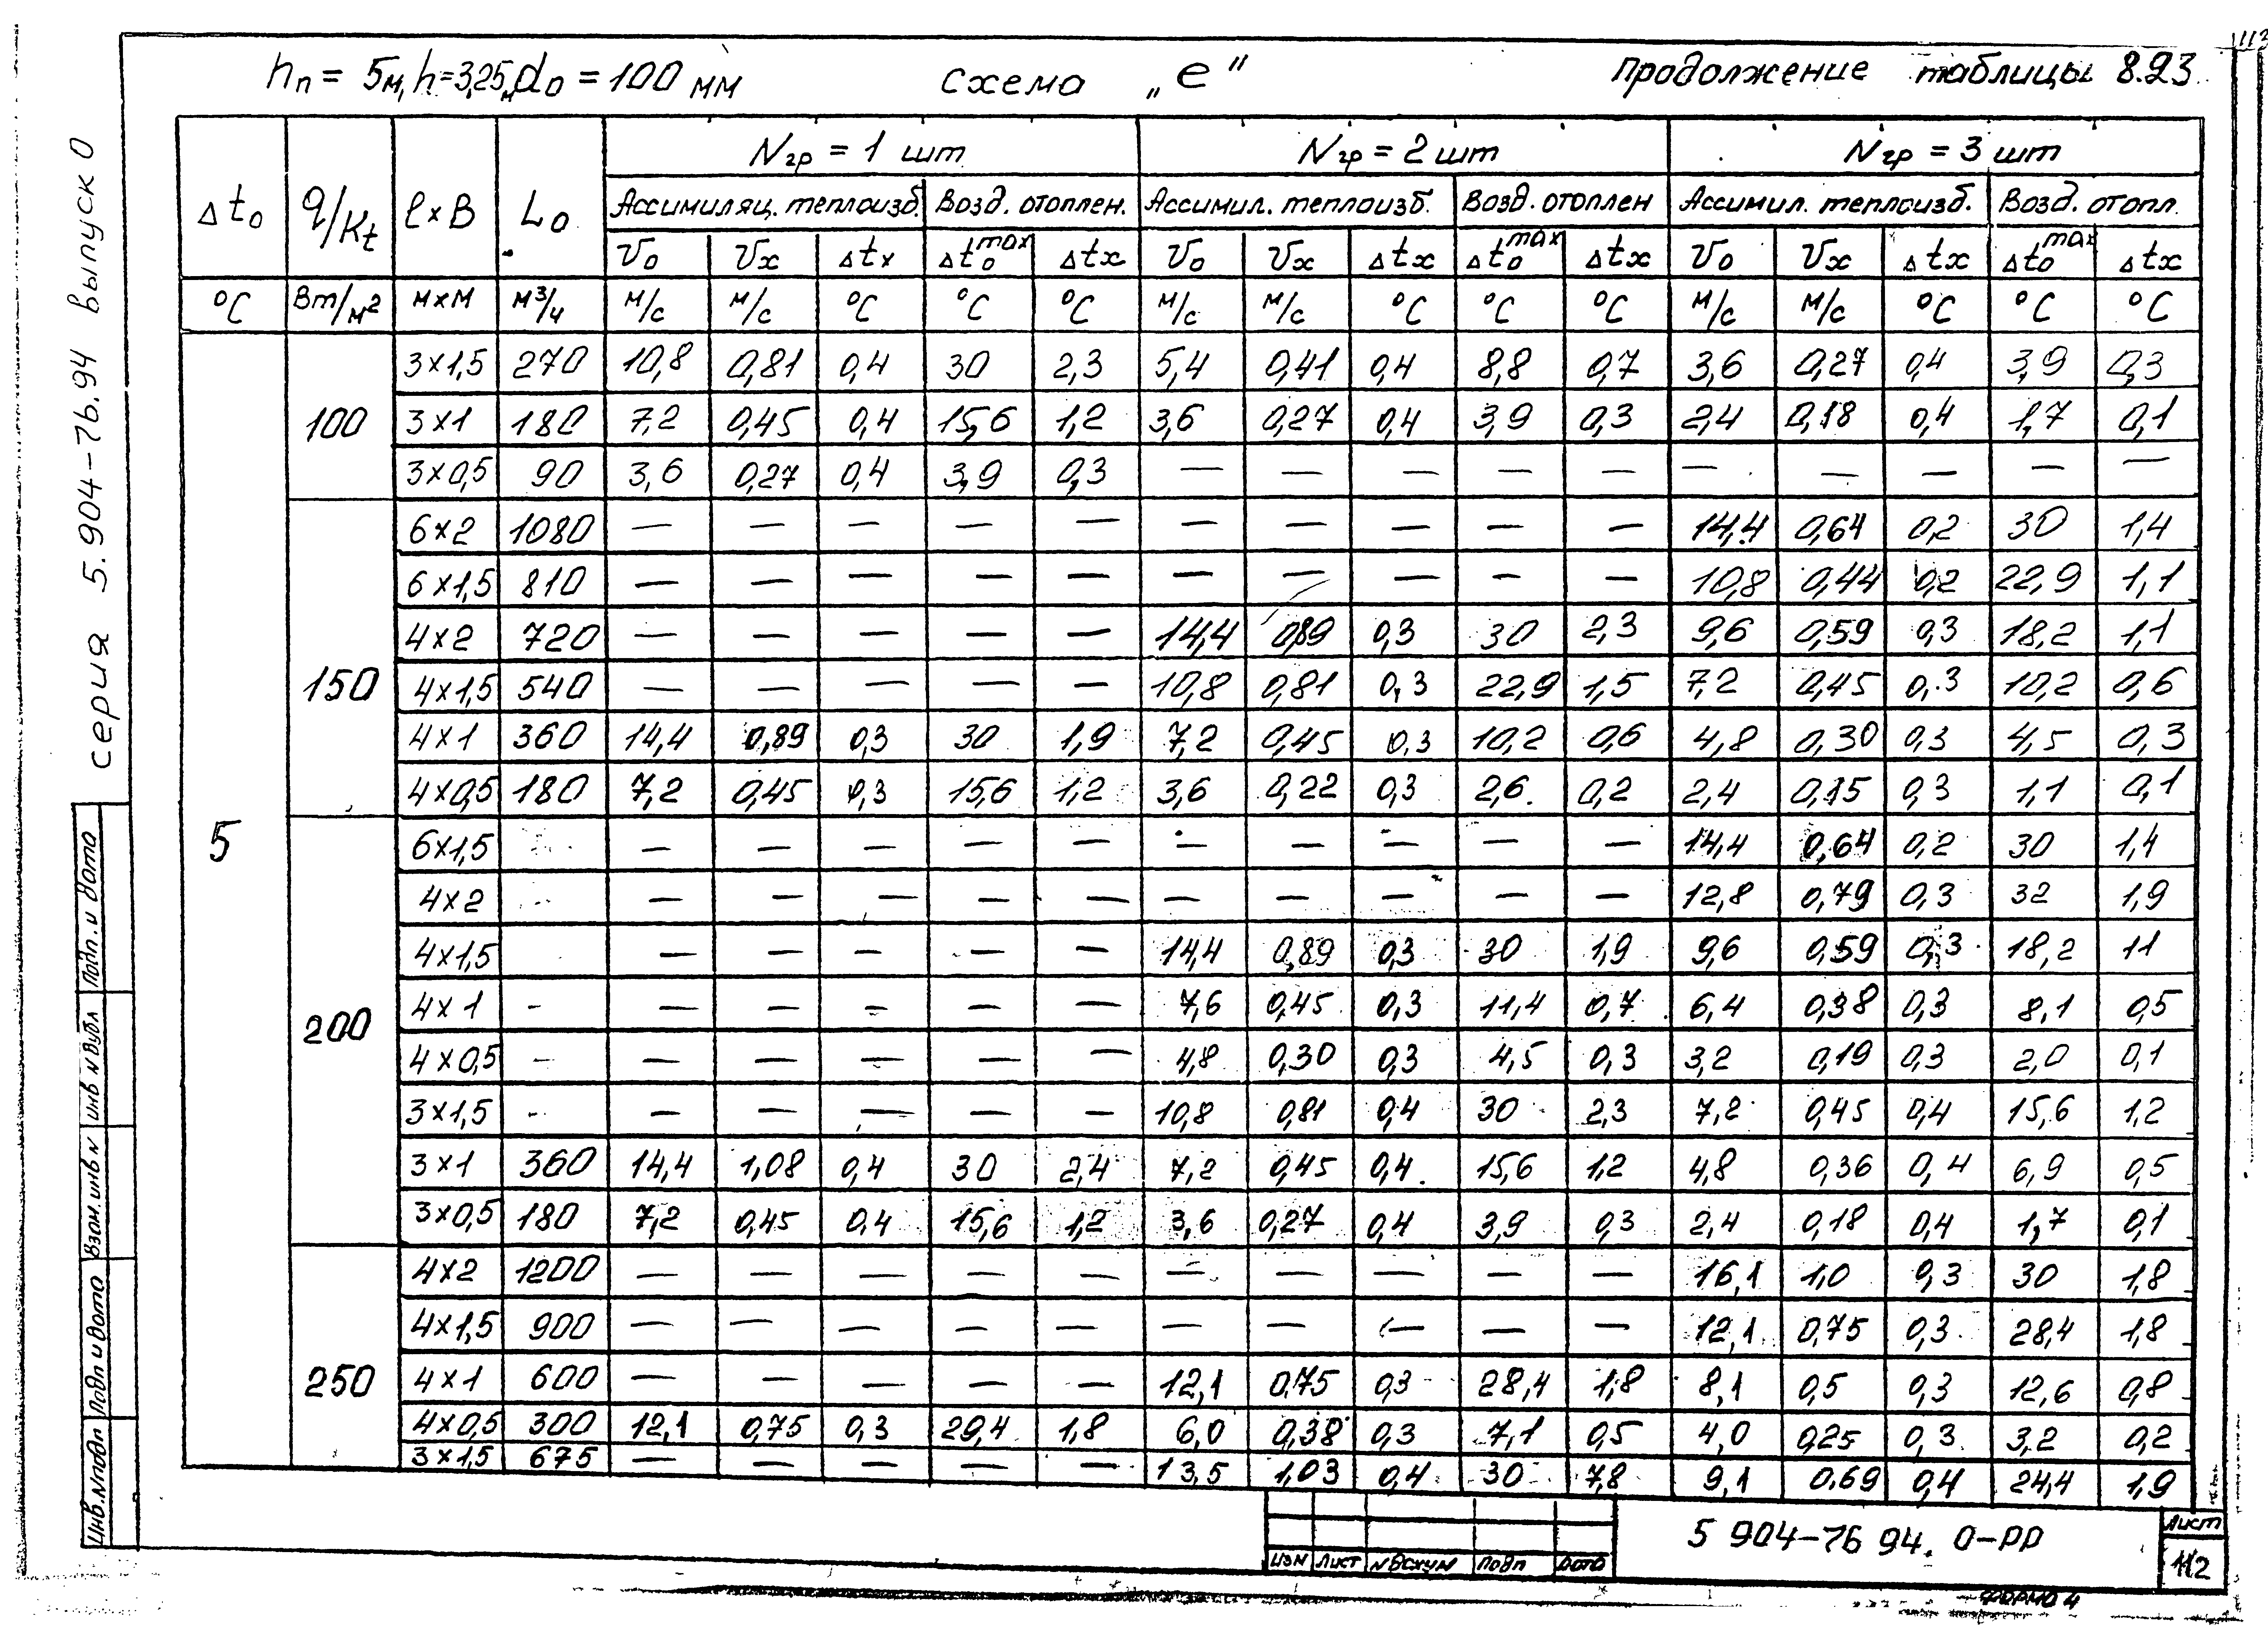 112
hп = 5м, h=3,25м, d0 = 100 мм схема „е“ Продолжение таблицы 8.23
серия 5.904-76.94 выпуск 0
Δt0 q/Kt ℓ×B L0 Nгр = 1 шт Nгр = 2 шт Nгр = 3 шт
Ассимиляц. теплоизб. Возд. отоплен. Ассимил. теплоизб. Возд. отоплен Ассимил. теплоизб. Возд. отопл.
V0 Vx Δtx Δt0max Δtx V0 Vx Δtx Δt0max Δtx V0 Vx Δtx Δt0max Δtx
°C Вт/м² м×м м³/ч м/с м/с °C °C °C м/с м/с °C °C °C м/с м/с °C °C °C
5
100
3×1,5 270 10,8 0,81 0,4 30 2,3 5,4 0,41 0,4 8,8 0,7 3,6 0,27 0,4 3,9 0,3
3×1 180 7,2 0,45 0,4 15,6 1,2 3,6 0,27 0,4 3,9 0,3 2,4 0,18 0,4 1,7 0,1
3×0,5 90 3,6 0,27 0,4 3,9 0,3 — — — — — — — — — —
150
6×2 1080 — — — — — — — — — — 14,4 0,64 0,2 30 1,4
6×1,5 810 — — — — — — — — — — 10,8 0,44 0,2 22,9 1,1
4×2 720 — — — — — 14,4 0,89 0,3 30 2,3 9,6 0,59 0,3 18,2 1,1
4×1,5 540 — — — — — 10,8 0,81 0,3 22,9 1,5 7,2 0,45 0,3 10,2 0,6
4×1 360 14,4 0,89 0,3 30 1,9 7,2 0,45 0,3 10,2 0,6 4,8 0,30 0,3 4,5 0,3
4×0,5 180 7,2 0,45 0,3 15,6 1,2 3,6 0,22 0,3 2,6 0,2 2,4 0,15 0,3 1,1 0,1
200
6×1,5 — — — — — — — — — — 14,4 0,64 0,2 30 1,4
4×2 — — — — — — — — — — 12,8 0,79 0,3 32 1,9
4×1,5 — — — — — 14,4 0,89 0,3 30 1,9 9,6 0,59 0,3 18,2 11
4×1 - — — — — — 7,6 0,45 0,3 11,4 0,7 6,4 0,38 0,3 8,1 0,5
4×0,5 - — — — — — 4,8 0,30 0,3 4,5 0,3 3,2 0,19 0,3 2,0 0,1
3×1,5 - — — — — — 10,8 0,81 0,4 30 2,3 7,2 0,45 0,4 15,6 1,2
3×1 360 14,4 1,08 0,4 30 2,4 7,2 0,45 0,4 15,6 1,2 4,8 0,36 0,4 6,9 0,5
3×0,5 180 7,2 0,45 0,4 15,6 1,2 3,6 0,27 0,4 3,9 0,3 2,4 0,18 0,4 1,7 0,1
250
4×2 1200 — — — — — — — — — — 16,1 1,0 0,3 30 1,8
4×1,5 900 — — — — — — — — — — 12,1 0,75 0,3 28,4 1,8
4×1 600 — — — — — 12,1 0,75 0,3 28,4 1,8 8,1 0,5 0,3 12,6 0,8
4×0,5 300 12,1 0,75 0,3 29,4 1,8 6,0 0,38 0,3 7,1 0,5 4,0 0,25 0,3 3,2 0,2
3×1,5 675 — — — — — 13,5 1,03 0,4 30 7,8 9,1 0,69 0,4 24,4 1,9
Инв.№подл Подп и дата Взам.инв № Инв № дубл Подп. и дата
Изм Лист № докум Подп Дата
5 904-76 94. 0-РР
Лист
112
Форма 4